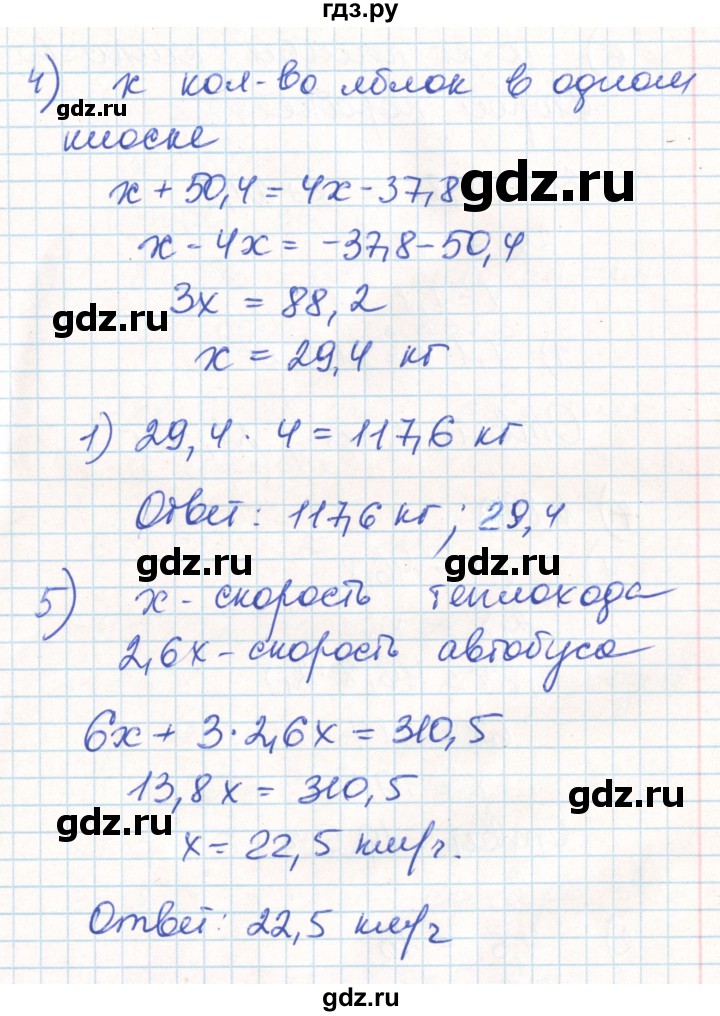 гдз.ру
4) x кол-во яблок в одном
gdz.ru
киоске
x + 50,4 = 4x - 37,8
gdz.ru
x - 4x = -37,8 - 50,4
3x = 88,2
gdz.ru
x = 29,4 кг
1) 29,4 · 4 = 117,6 кг
Ответ: 117,6 кг; 29,4
gdz.ru gdz.ru
5) x - скорость теплохода
2,6x - скорость автобуса
6x + 3·2,6x = 310,5
13,8x = 310,5
gdz.ru
gdz.ru
x = 22,5 км/ч.
Ответ: 22,5 км/ч
gdz.ru